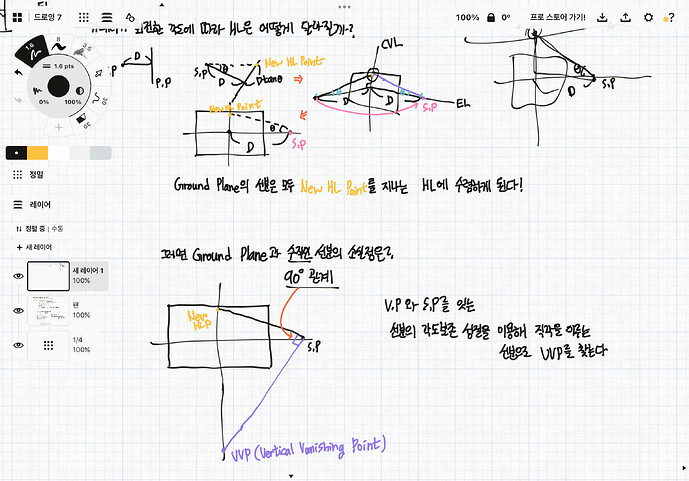 드로잉 7
100%
0°
프로 스토어 가기!
회전한 각도에 따라 HL은 어떻게 달라질까?
1.6
8
1.6 pts
0%
100%
30
30
D
P.P
S.P
θ
New HL Point
D
Dtanθ
CVL
D
D
EL
S.P
θ
D
S.P
New HL Point
θ
D
S.P
정밀
레이어
정렬 중 | 수동
+ 새 레이어
새 레이어 1
100%
펜
100%
1/4
100%
Ground Plane의 선분은 모두 New HL Point를 지나는 HL에 수렴하게 된다!
그러면 Ground Plane과 수직인 선분의 소실점은?
90° 관계
New
HLP
S.P
V.P 와 S.P를 잇는
선분의 각도보존 성질을 이용해 직각을 이루는
선분으로 VVP를 찾는다
VVP (Vertical Vanishing Point)